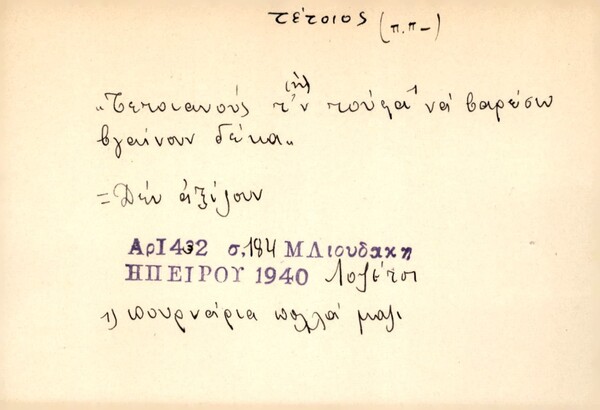 τέτοιος (π.π–)
(ὴλ)
„Τετοιανούς τ'ν τούφα¹ νά βαρέσω
βγαίνουν δέκα„
= Δέν ἀξίζουν
Αρ1432 σ, 184 Μ Λιουδακη
ΗΠΕΙΡΟΥ 1940 Λοζέτσι
1) πουρνάρια πολλά μαζι